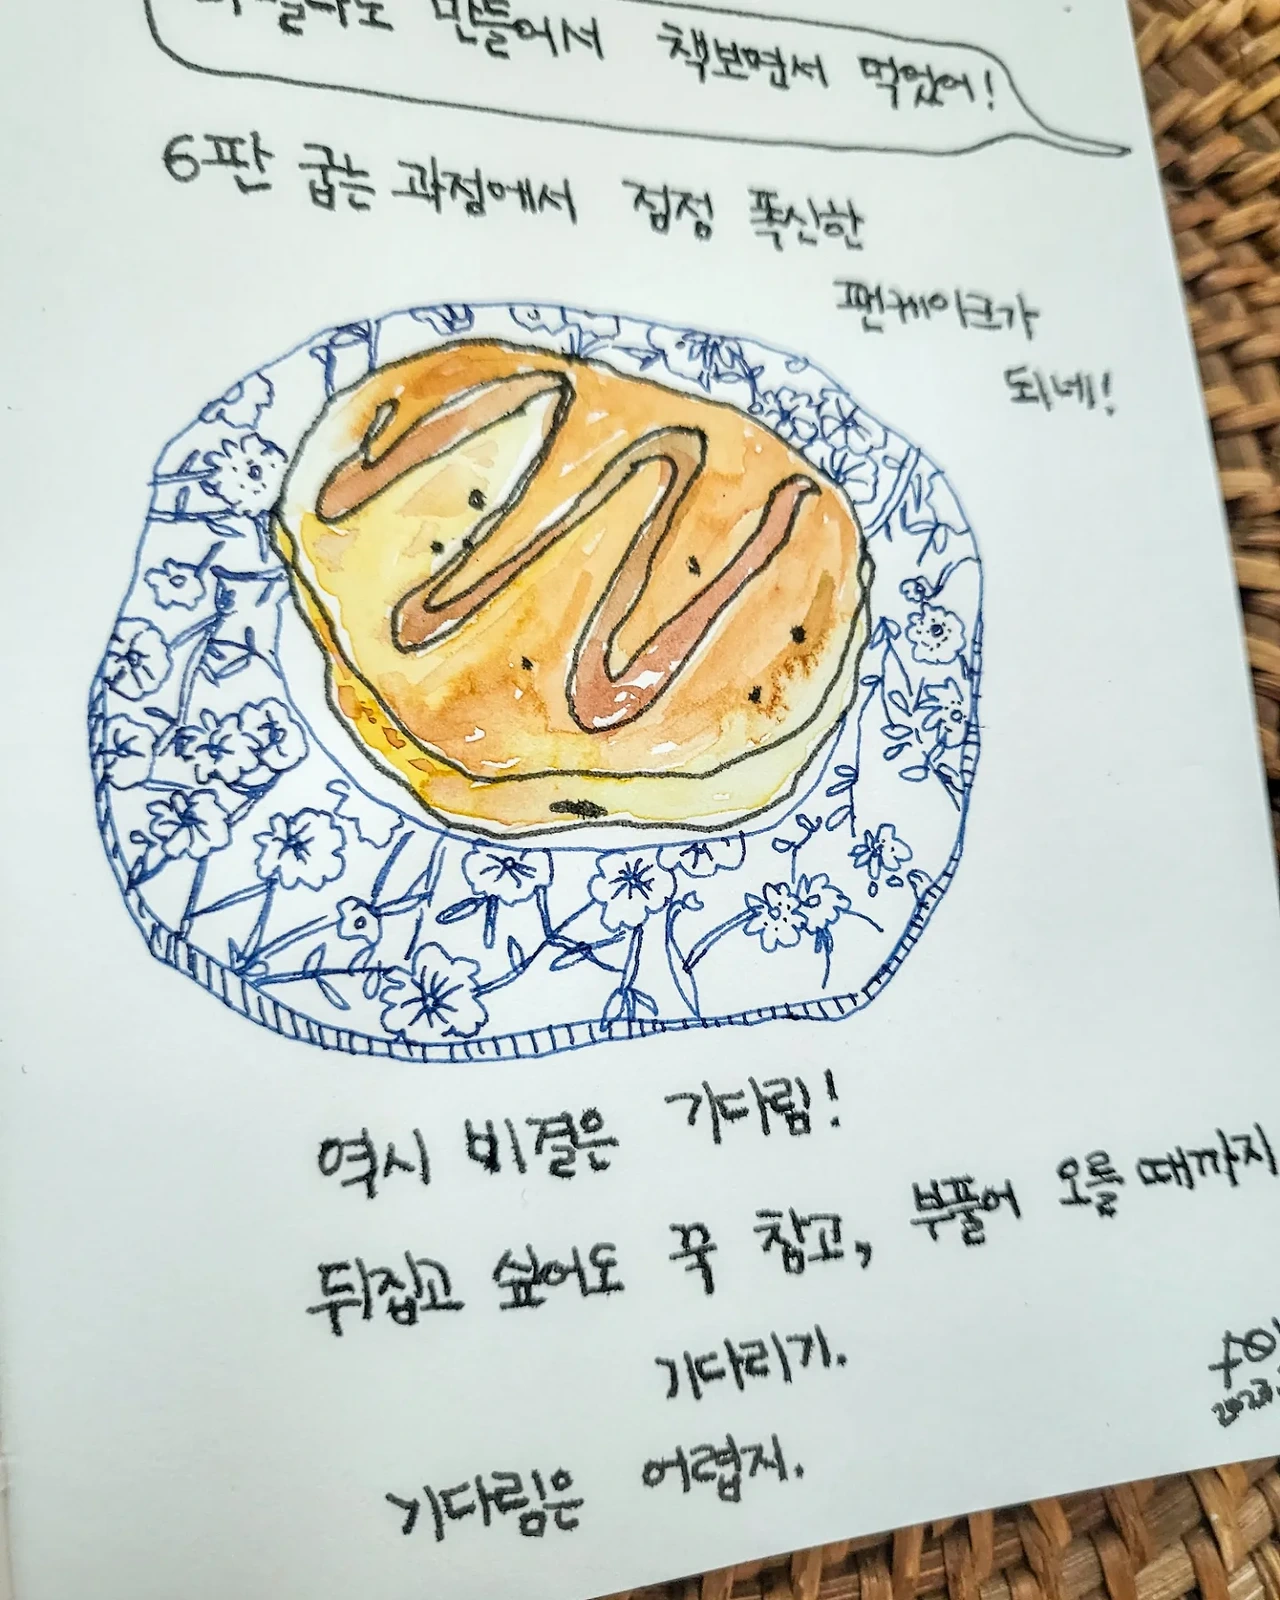 만들어서 책보면서 먹었어!
6판 굽는 과정에서 점점 폭신한
팬케이크가
되네!
역시 비결은 기다림!
뒤집고 싶어도 꾹 참고, 부풀어 오를 때까지
기다리기.
기다림은 어렵지.